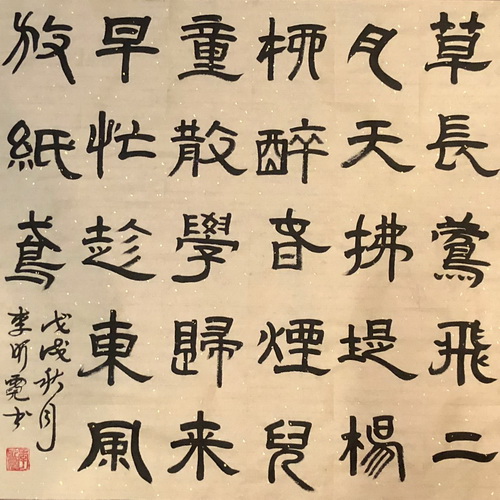 草長鶯飛二
月天拂堤楊
柳醉春煙兒
童散學歸来
早忙趁東風
放紙鳶
戊戌秋月
李昕霓书